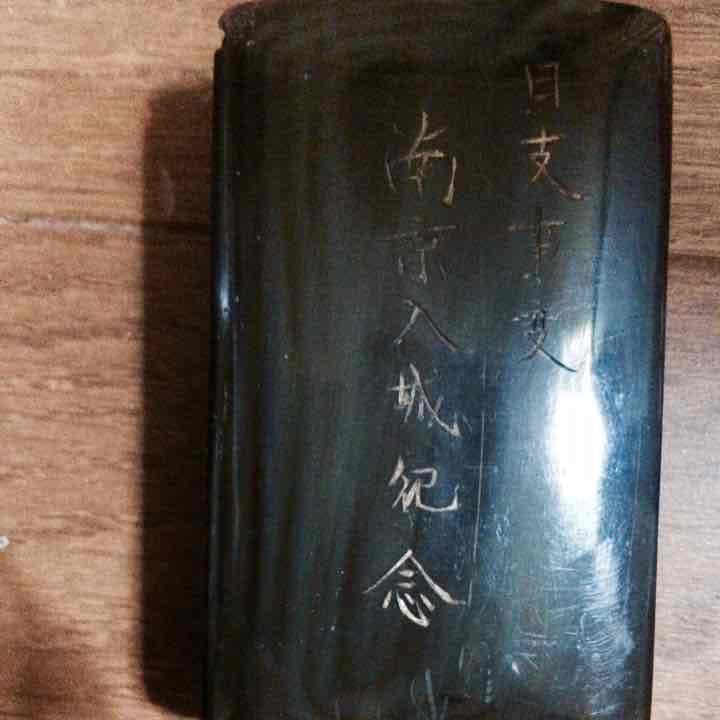 日支事変
南京入城紀念